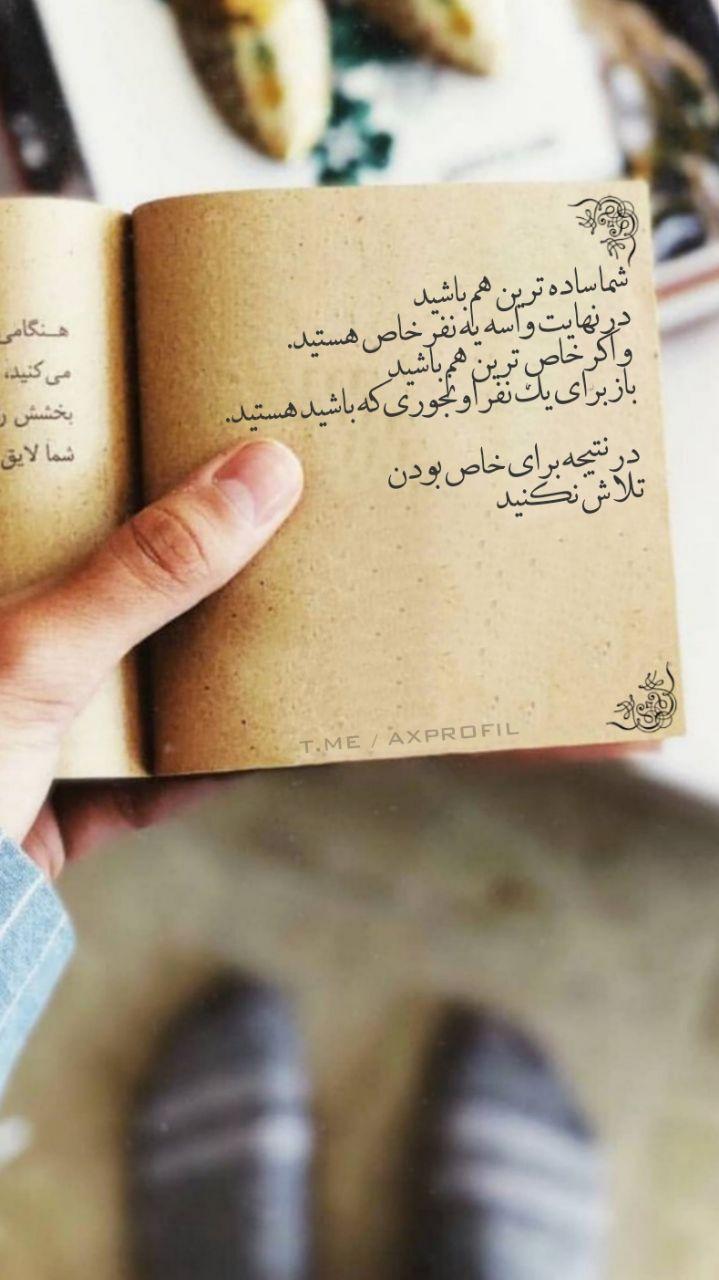 شما ساده ترین هم باشید
در نهایت واسه یه نفر خاص هستید.
و اگر خاص ترین هم باشید
باز برای یك نفر اونجوری که باشید هستید.
در نتیجه برای خاص بودن
تلاش نکنید
هنگامی
می‌کنید،
بخشش ر
شما لایق
T.ME / AXPROFIL